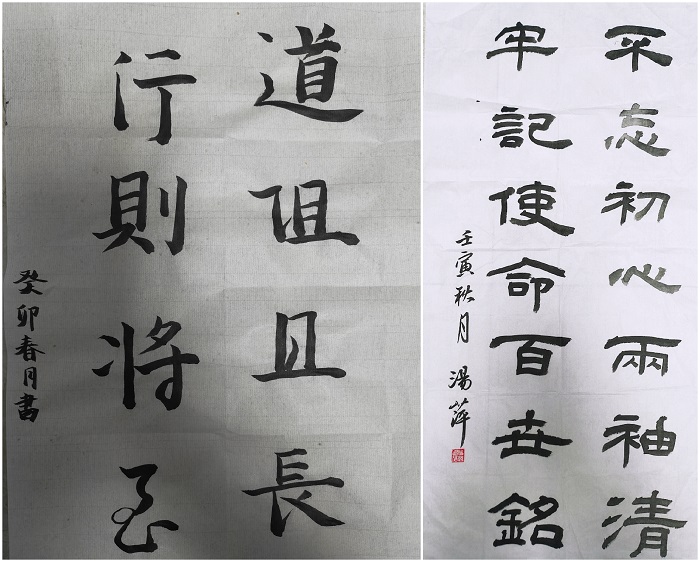 道阻且長
行則将至
癸卯春月書
不忘初心兩袖清
牢記使命百世銘
壬寅秋月 湯萍